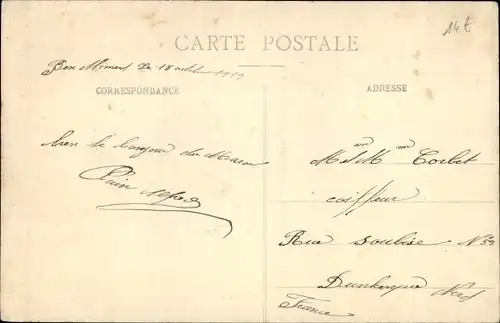 14 €
CARTE POSTALE
Ben Le 18 1919
CORRESPONDANCE
ADRESSE
bien le bonjour du Maroc
Mr & Mme Corbet
coiffeur
Rue Soubise N 59
Dunkerque Nord
France